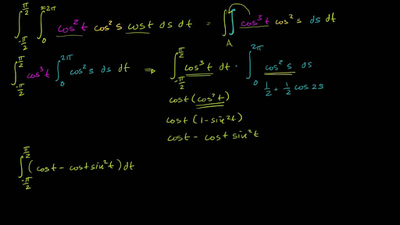 ∫_{-π/2}^{π/2} ∫_0^{2π} cos²t cos²s cost ds dt = ∫∫_A cos³t cos²s ds dt
∫_{-π/2}^{π/2} cos³t ∫_0^{2π} cos²s ds dt ⇒ ∫_{-π/2}^{π/2} cos³t dt · ∫_0^{2π} cos²s ds
1/2 + 1/2 cos2s
cost (cos²t)
cost (1-sin²t)
cost - cost sin²t
∫_{-π/2}^{π/2} (cost - cost sin²t) dt